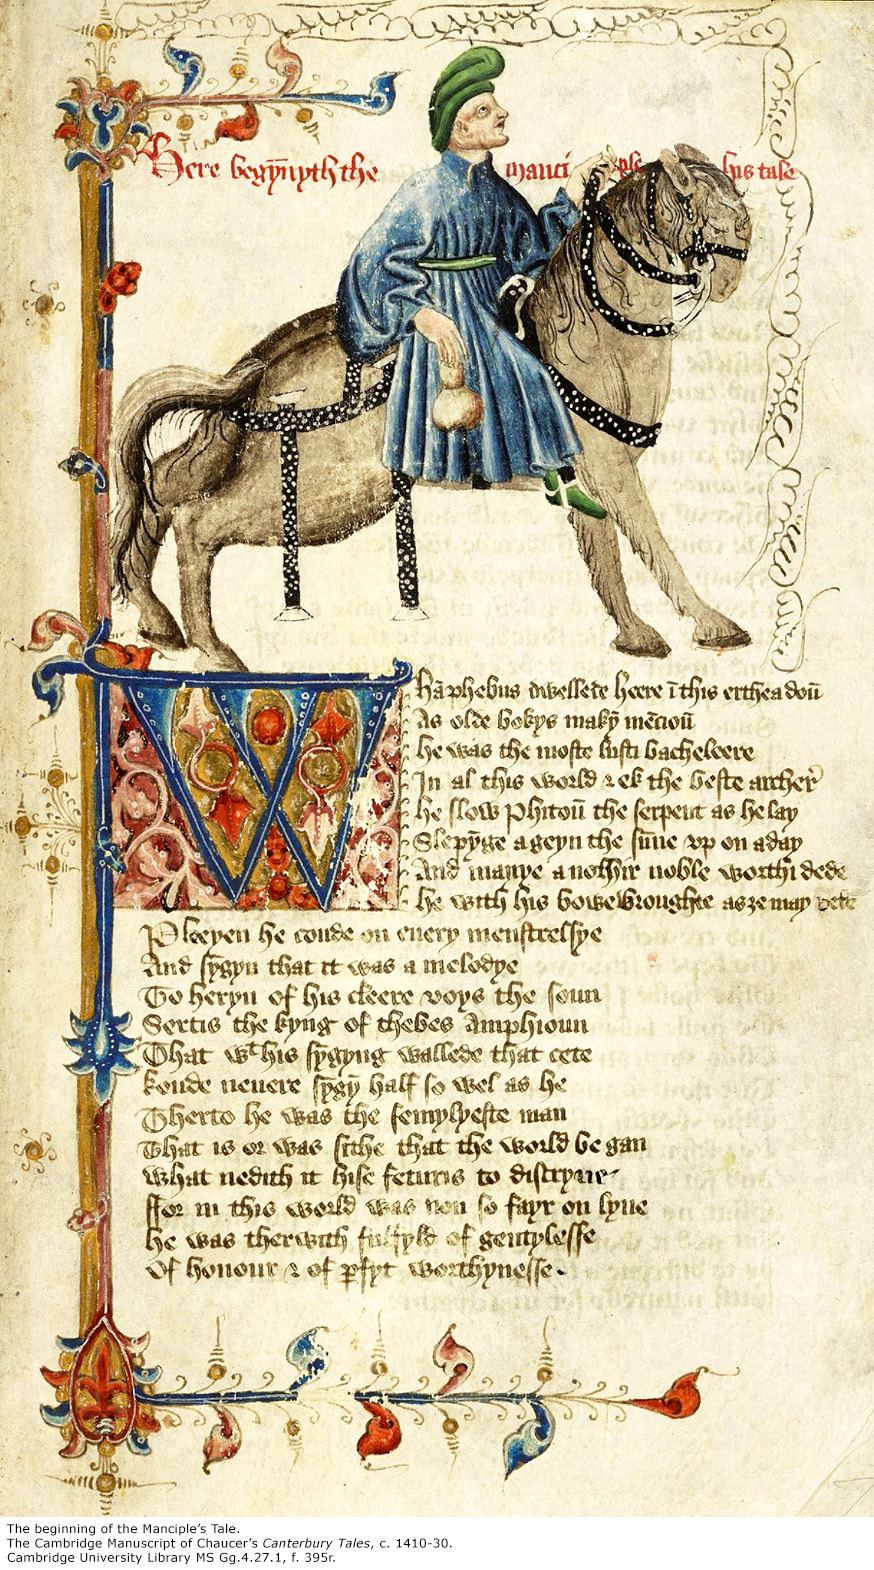 Here begyn̄yth the manciple his tale
Whan̄ phebus dwellede heere ī this erthe adoū
As olde bokys makyn̄ mēcioū
he was the moste lusti bacheleere
In al this world & ek the beste archer
he slow Phitoū the serpent as he lay
Slepyn̄ge ageyn the sūne vp on a day
And manye a nothir noble worthi dede
he with his bowe wroughte as ȝe may rede
Pleeyen he coude on euery menstrelsye
And syngyn that it was a melodye
To heryn of his cleere voys the soun
Sertis the kyng of thebes Amphioun
That wt his syngyng wallede that cete
koude neuere syngyn̄ half so wel as he
Therto he was the semylyeste man
That is or was sithe that the world be gan
what nedith it hise feturis to discryue
ffor in this world was non so fayr on lyue
he was therwith fulfyld of gentylesse
Of honour & of p̱fyt worthynesse .
The beginning of the Manciple’s Tale.
The Cambridge Manuscript of Chaucer’s Canterbury Tales, c. 1410-30.
Cambridge University Library MS Gg.4.27.1, f. 395r.